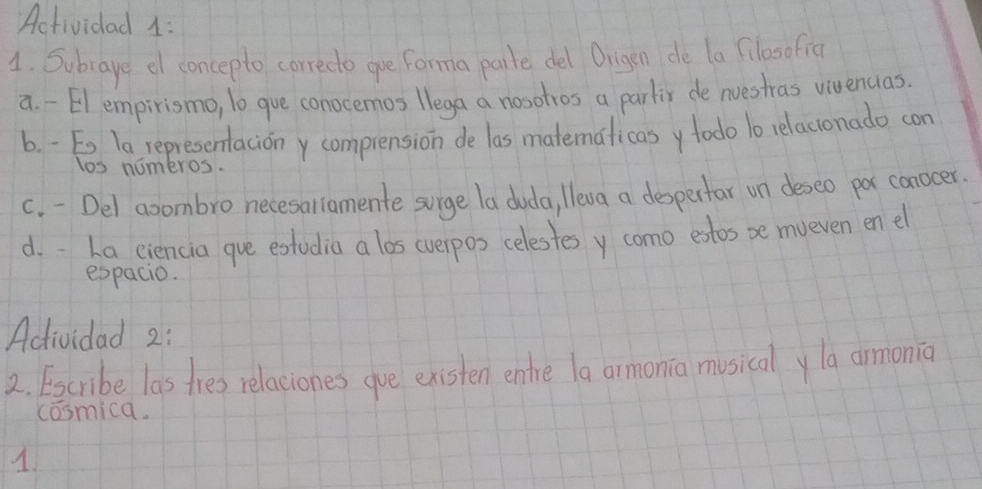 Actividad 1:
1. Subraye el concepto correcto que forma parte del Origen de la filosofía
a.- El empirismo, lo que conocemos llega a nosotros a partir de nuestras vivencias.
b.- Es la representación y comprensión de las matemáticas y todo lo relacionado con
los números.
c.- Del asombro necesariamente surge la duda, lleva a despertar un deseo por conocer.
d.- La ciencia que estudia a los cuerpos celestes y como estos se mueven en el
espacio.
Actividad 2:
2. Escribe las tres relaciones que existen entre la armonía musical y la armonía
cósmica.
1.